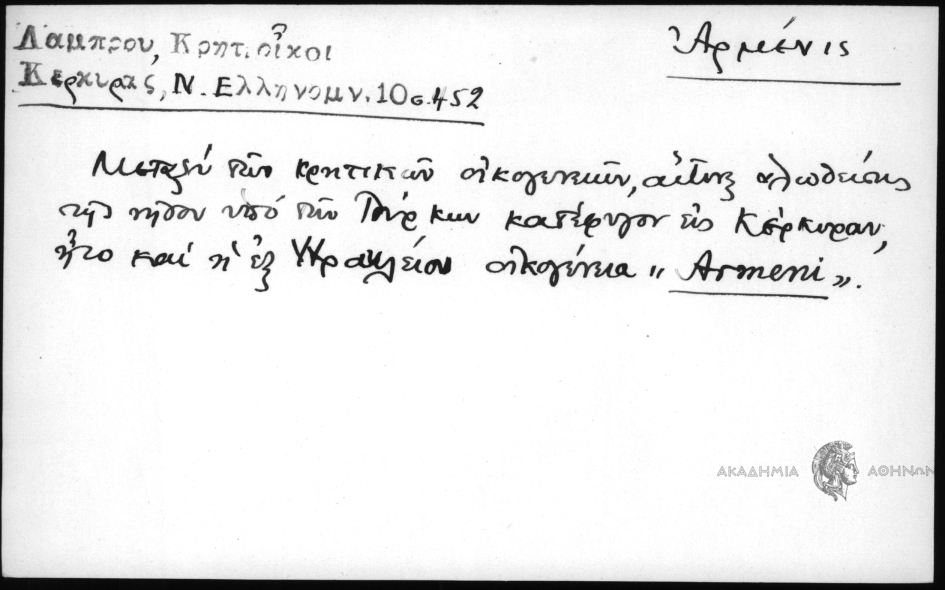 Λαμπρου, Κρητ. οἶκοι
Κερκυρας, Ν. Ελληνομν. 10 σ. 452
Ἀρμένις
Μεταξύ τῶν κρητικῶν οἰκογενειῶν, αἵτινες ἁλωθείσης
τῆς νήσου υπό τῶν Τούρκων κατέφυγον εἰς Κέρκυραν,
ἦτο καί ἡ ἐξ Ἡρακλείου οἰκογένεια „ Armeni ”.
ΑΚΑΔΗΜΙΑ ΑΘΗΝΩΝ